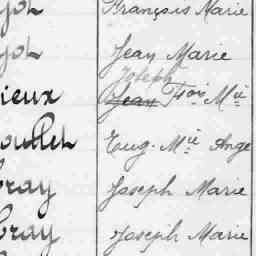 François Marie
Jean Marie
Joseph
ieux Jean Fçois Mie
oullet Eug. Mie Ange
ray Joseph Marie
ray Joseph Marie